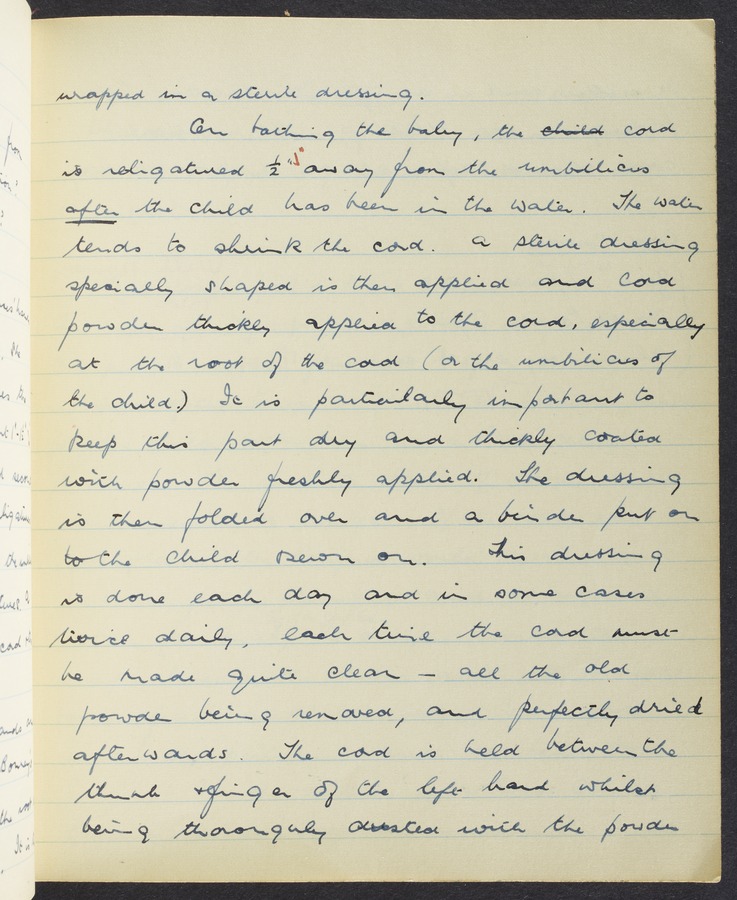 wrapped in a sterile dressing.
On bathing the baby, the child cord
is religatured ½" away from the umbilicus
after the child has been in the water. The water
tends to shrink the cord. A sterile dressing
specially shaped is then applied and cord
powder thickly applied to the cord, especially
at the root of the cord (or the umbilicus of
the child.) It is particularly important to
keep this part dry and thickly coated
with powder freshly applied. The dressing
is then folded over and a binder put on
to the child sewn on. This dressing
is done each day and in some cases
twice daily, each time the cord must
be made quite clean – all the old
powder being removed, and perfectly dried
afterwards. The cord is held between the
thumb & finger of the left hand whilst
being thoroughly dusted with the powder